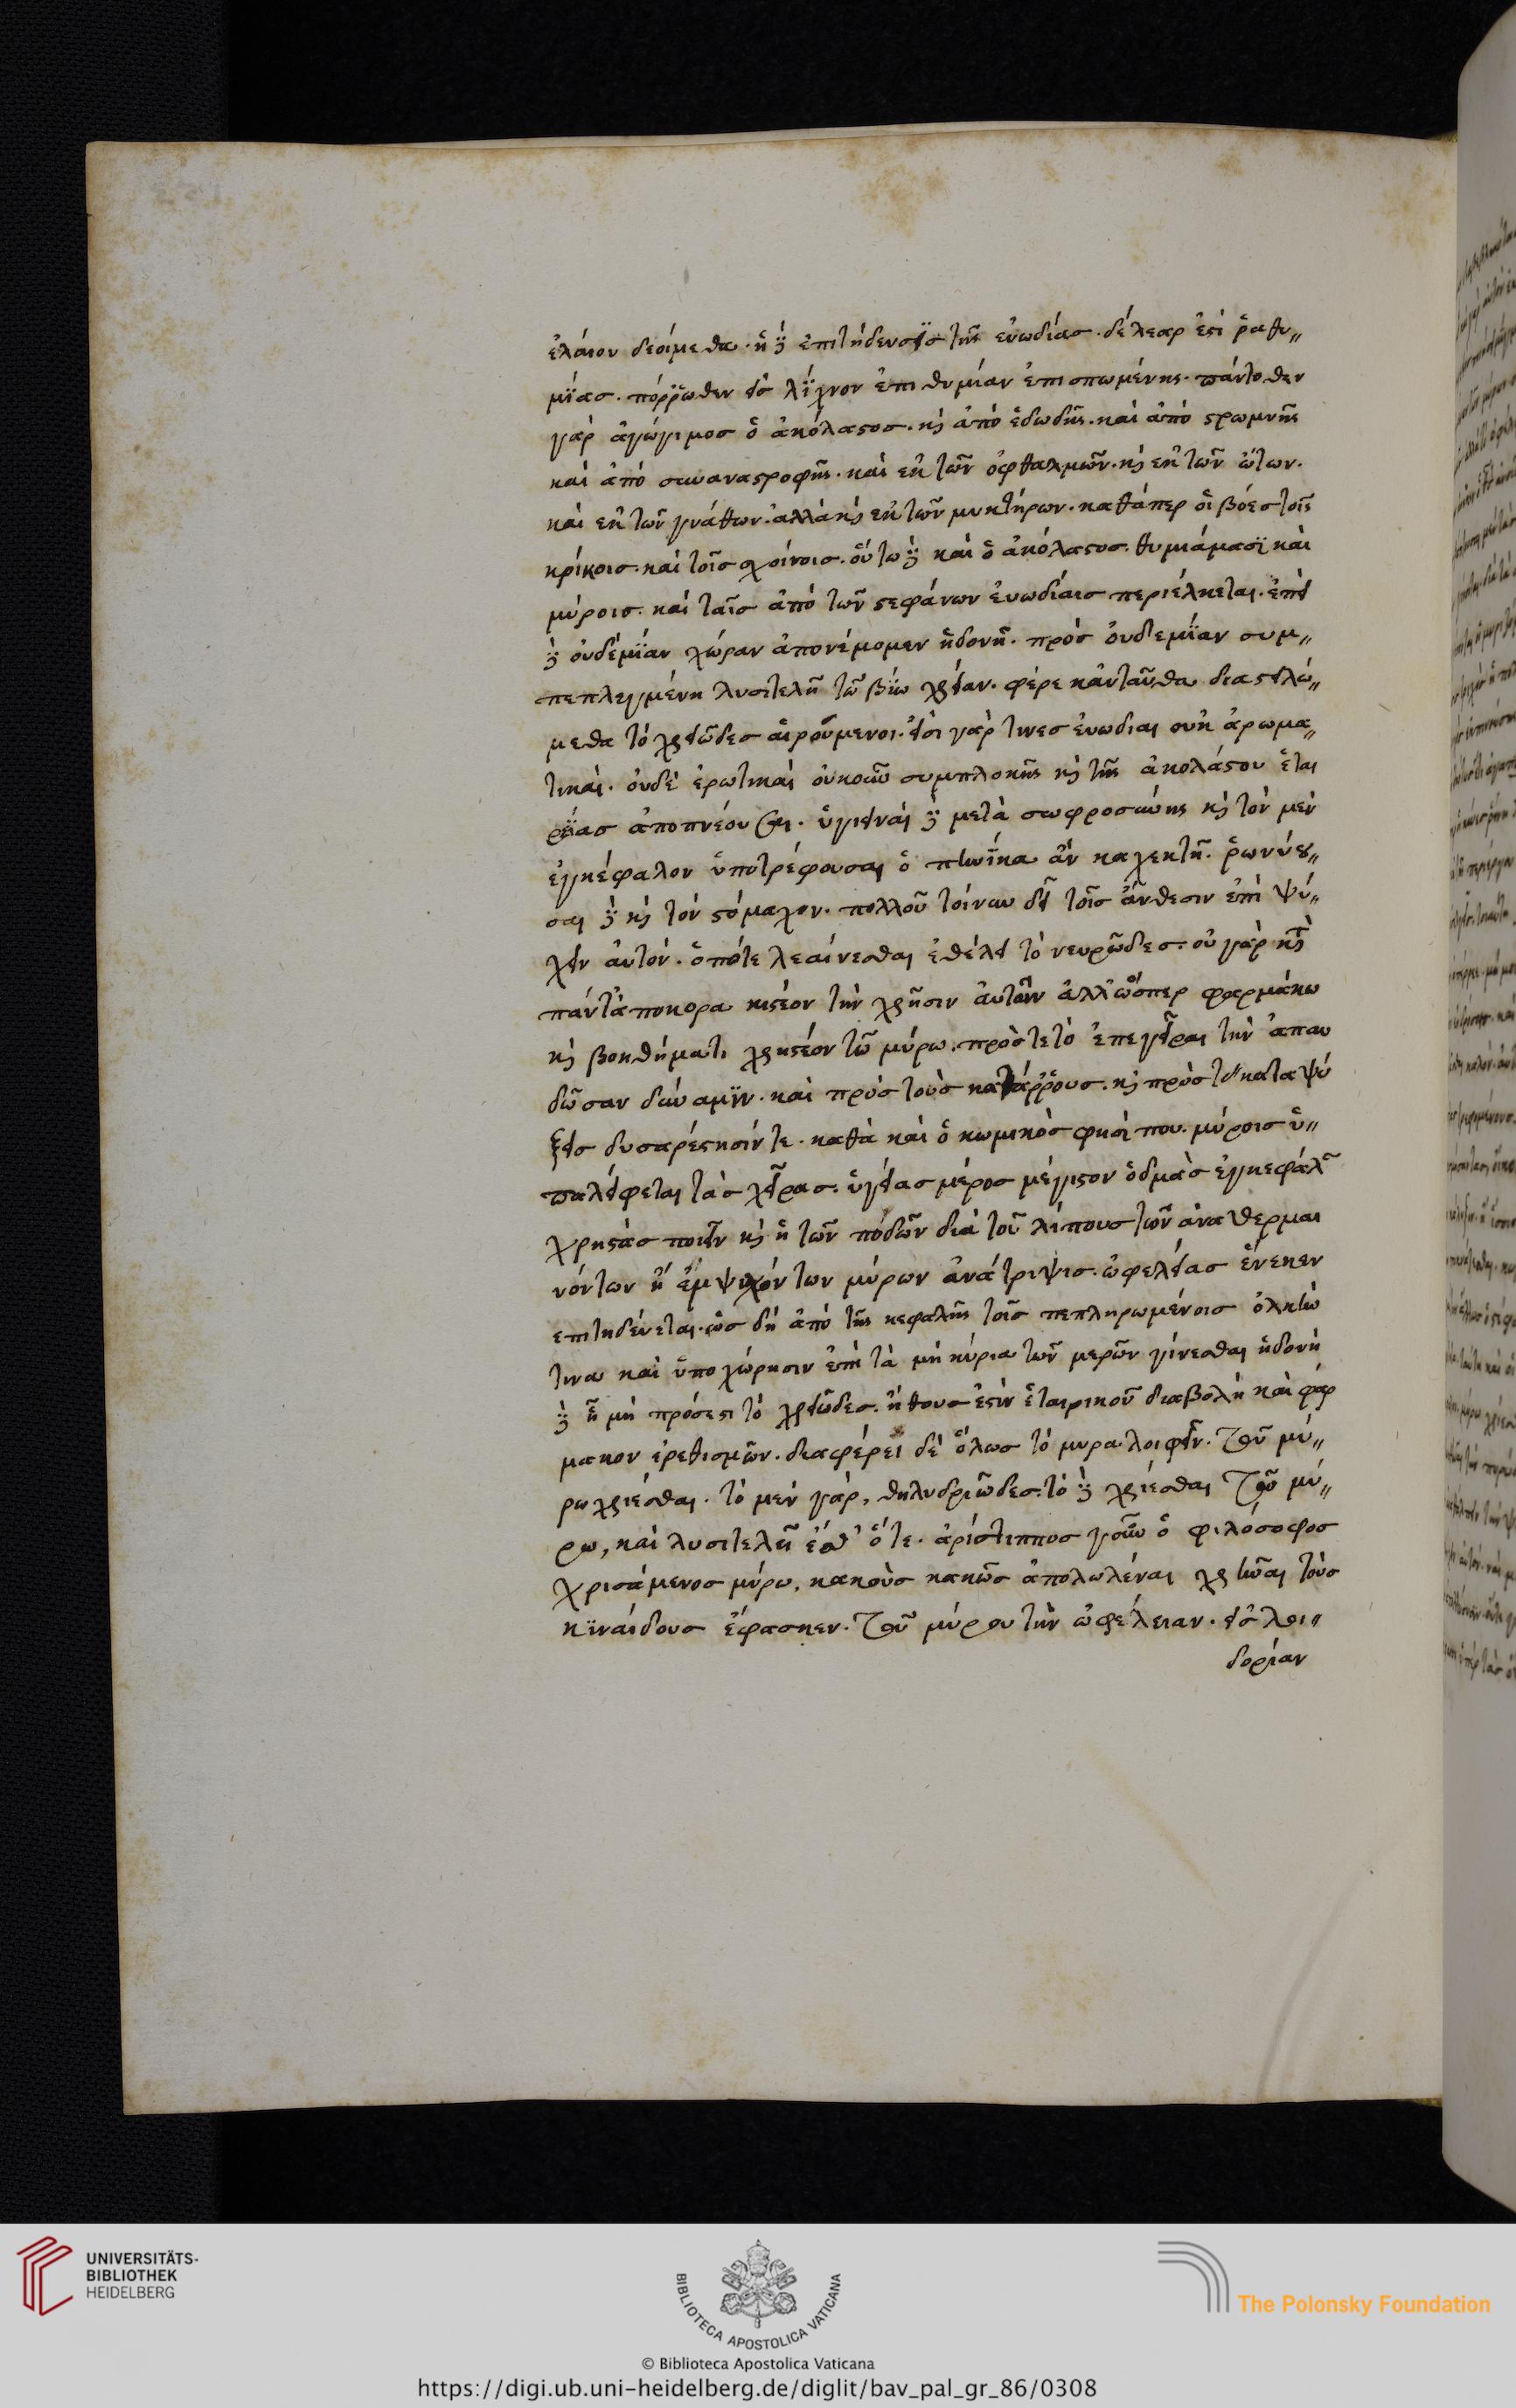 ἐλαίου δεοίμεθα. ἡ δὲ ἐπιτήδευσϊς τῆς εὐωδίας. δέλεαρ ἐστὶ ῥαθυ„
μΐας. πόρρωθεν εἰς λΐχνον ἐπιθυμίαν ἐπισπωμένης. πάντοθεν
γὰρ ἀγώγιμος ὁ ἀκόλαστος. καὶ ἀπὸ ἐδωδῆς. καὶ ἀπὸ στρωμνῆς
καὶ ἀπὸ συναναστροφῆς. καὶ ἐκ τῶν ὀφθαλμῶν. καὶ ἐκ τῶν ὤτων.
καὶ ἐκ τῶν γνάθων. ἀλλὰ καὶ ἐκ τῶν μυκτήρων. καθάπερ οἱ βόες τοῖς
κρίκοις. καὶ τοῖς σχοίνοις. οὕτω δὲ καὶ ὁ ἀκόλαστος. θυμιάμασϊ καὶ
μύροις. καὶ ταῖς ἀπὸ τῶν στεφάνων εὐωδίαις περιέλκεται. ἐπεὶ
δὲ οὐδεμΐαν χώραν ἀπονέμομεν ἡδονῆ. πρὸς οὐδεμΐαν συμ„
πεπλεγμένη λυσιτελῆ τῶ βΐω χρείαν. φέρε κἀνταῦθα διαστελώ„
μεθα τὸ χρειῶδες αἱρούμενοι. εἰσὶ γάρ τινες εὐωδίαι οὐκ ἀρωμα„
τικαὶ. οὐδὲ ἐρωτικαὶ οὐκοῦν συμπλοκῆς καὶ τῆς ἀκολάστου ἑται
ρΐας ἀποπνέουσαι. ὑγιειναὶ δὲ μετὰ σωφροσύνης καὶ τὸν μὲν
ἐγκέφαλον ὑποτρέφουσαι ὁ πηνΐκα ἂν καχεκτῆ. ῥωννύου„
σαι δὲ καὶ τὸν στόμαχον. πολλοῦ τοίνυν δεῖ τοῖς ἄνθεσιν ἐπὶ ψύ„
χειν αὐτὸν. ὁπότε λεαίνεσθαι ἐθέλει τὸ νευρῶδες. οὐ γὰρ κατὰ
πάντἀποκορακιστέον τὴν χρῆσιν αὐτῶν ἀλλ' ὥσπερ φαρμάκω
καὶ βοηθήματι χρηστέον τῶ μύρω. πρὸς τε τὸ ἐπεγεῖραι τὴν ἀπαυ
δῶσαν δύναμϊν. καὶ πρὸς τοὺς κατάρρους. καὶ πρὸς τὰς καταψύ
ξεις δυσαρέστησίν τε. καθὰ καὶ ὁ κωμικὸς φησί που. μύροις ὑ„
παλείφεται τὰς χεῖρας. ὑγείας μέρος μέγιστον ὀδμὰς ἐγκεφάλω
χρηστὰς ποιεῖν καὶ ἡ τῶν ποδῶν διὰ τοῦ λίπους τῶν ἀναθερμαι
νόντων ἢ ἐμψυχόντων μύρων ἀνάτριψις. ὠφελείας ἕνεκεν
ἐπιτηδεύεται. ὡς δὴ ἀπὸ τῆς κεφαλῆς τοῖς πεπληρωμένοις ὁλκήν
τινα καὶ ὑποχώρησιν ἐπὶ τὰ μὴ κύρια τῶν μερῶν γίνεσθαι ἡδονὴ
δὲ ἧ μὴ πρόσεστι τὸ χρειῶδες. ἤθους ἐστὶν ἑταιρικοῦ διαβολὴ καὶ φάρ
μακον ἐρεθισμῶν. διαφέρει δὲ ὅλως τὸ μυραλοιφεῖν. τοῦ μύ„
ρω χρίεσθαι. τὸ μὲν γὰρ, θηλυδριῶδες. τὸ δὲ χρίεσθαι τοῦ μύ„
ρω, καὶ λυσιτελεῖ ἔσθ' ὅτε. ἀρίστιππος γοῦν ὁ φιλόσοφος
χρισάμενος μύρω, κακοὺς κακῶς ἀπολωλέναι χρῆναι τοὺς
κϊναίδους ἔφασκεν. τοῦ μύρου τὴν ὠφέλειαν. εἰς λοι„
δορίαν
UNIVERSITÄTS-
BIBLIOTHEK
HEIDELBERG
BIBLIOTECA APOSTOLICA VATICANA
The Polonsky Foundation
© Biblioteca Apostolica Vaticana
https://digi.ub.uni-heidelberg.de/diglit/bav_pal_gr_86/0308